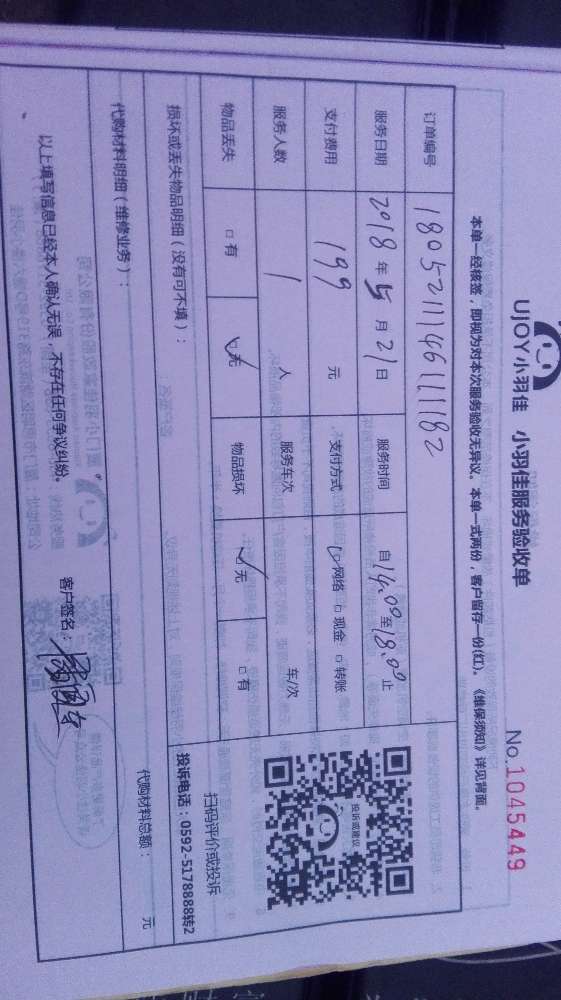 UJOY小羽佳 小羽佳服务验收单
No.1045449
本单一经核签，即视为对本次服务验收无异议。本单一式两份，客户留存一份(红)。《维保须知》详见背面。
订单编号 18052111146111182
服务日期 2018年5月21日 服务时间 自14:00至18:00止
支付费用 199元 支付方式 ☑网络 □现金 □转账
服务人数 1人 服务车次 车/次
物品丢失 □有 ☑无 物品损坏 ☑无 □有
投诉或建议
扫码评价或投诉
投诉电话：0592-5178888转2
损坏或丢失物品明细（没有可不填）：
代购材料明细（维修业务）： 代购材料总额： 元
以上填写信息已经本人确认无误，不存在任何争议纠纷。 客户签名：